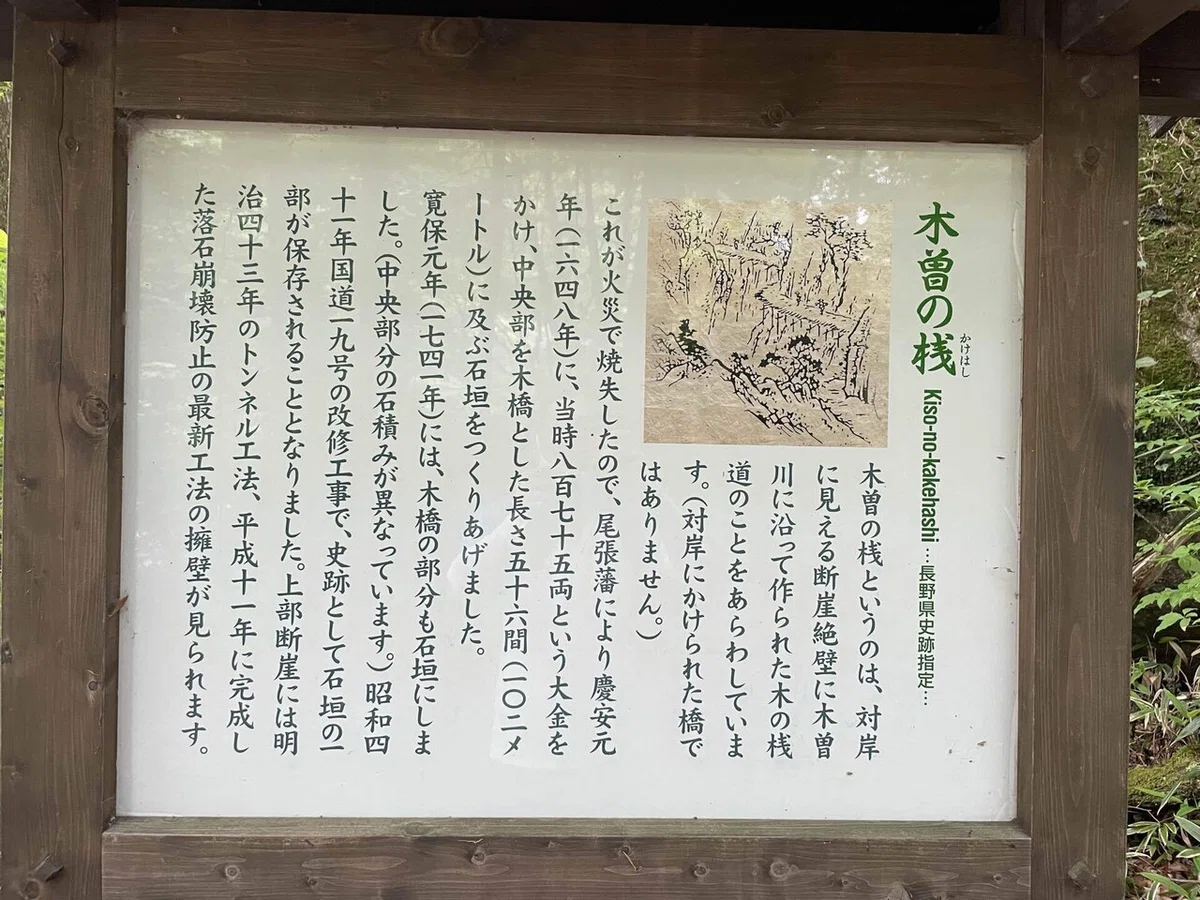 木曽の桟 Kiso-no-kakehashi …長野県史跡指定…
かけはし
木曽の桟というのは、対岸
に見える断崖絶壁に木曽
川に沿って作られた木の桟
道のことをあらわしていま
す。(対岸にかけられた橋で
はありません。)
これが火災で焼失したので、尾張藩により慶安元
年(一六四八年)に、当時八百七十五両という大金を
かけ、中央部を木橋とした長さ五十六間(一〇二メ
ートル)に及ぶ石垣をつくりあげました。
寛保元年(一七四一年)には、木橋の部分も石垣にしま
した。(中央部分の石積みが異なっています。)昭和四
十一年国道一九号の改修工事で、史跡として石垣の一
部が保存されることとなりました。上部断崖には明
治四十三年のトンネル工法、平成十一年に完成し
た落石崩壊防止の最新工法の擁壁が見られます。